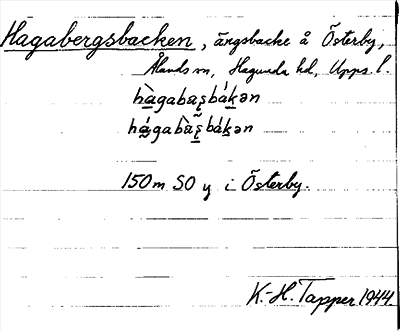 Hagabergsbacken, ängsbacke å Österby,
Ålands sn, Hagunda hd, Upps. l.
150 m SO y i Österby.
K.-H. Tapper 1944